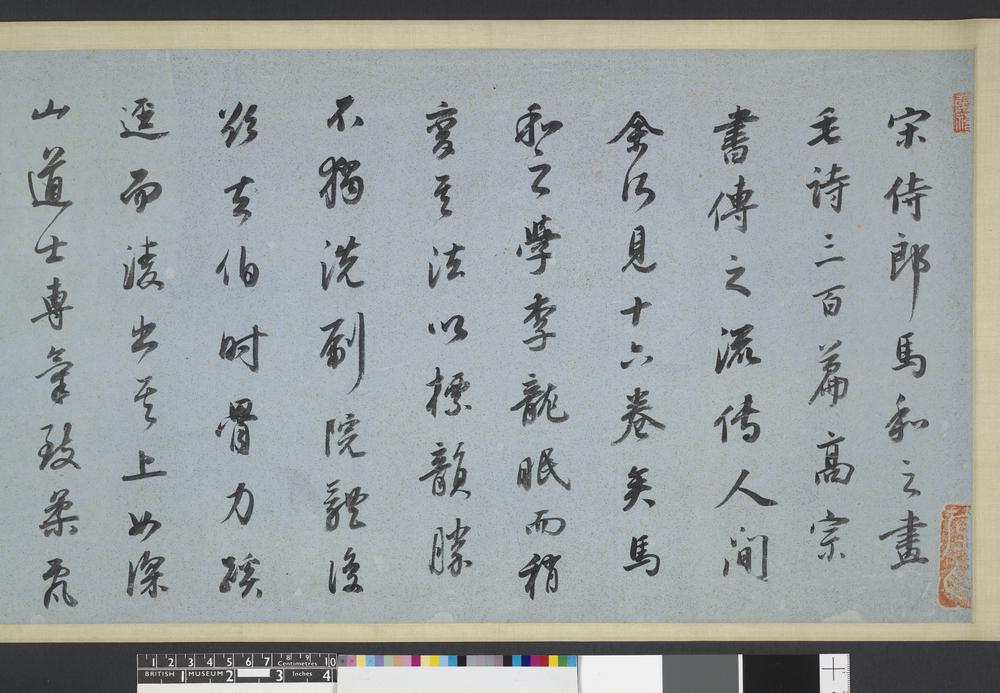 宋侍郎馬和之畫
毛詩三百篇高宗
書傳之流傳人间
余所見十六卷矣馬
和之學李龍眠而稍
變其法以標韻勝
不獨洗刷院體復
欲去伯时骨力蹊
逕而凌出其上如深
山道士專氣致柔
1 2 3 4 5 6 7 8 9 10
Centimetres
BRITISH MUSEUM
1 2 3 4
Inches